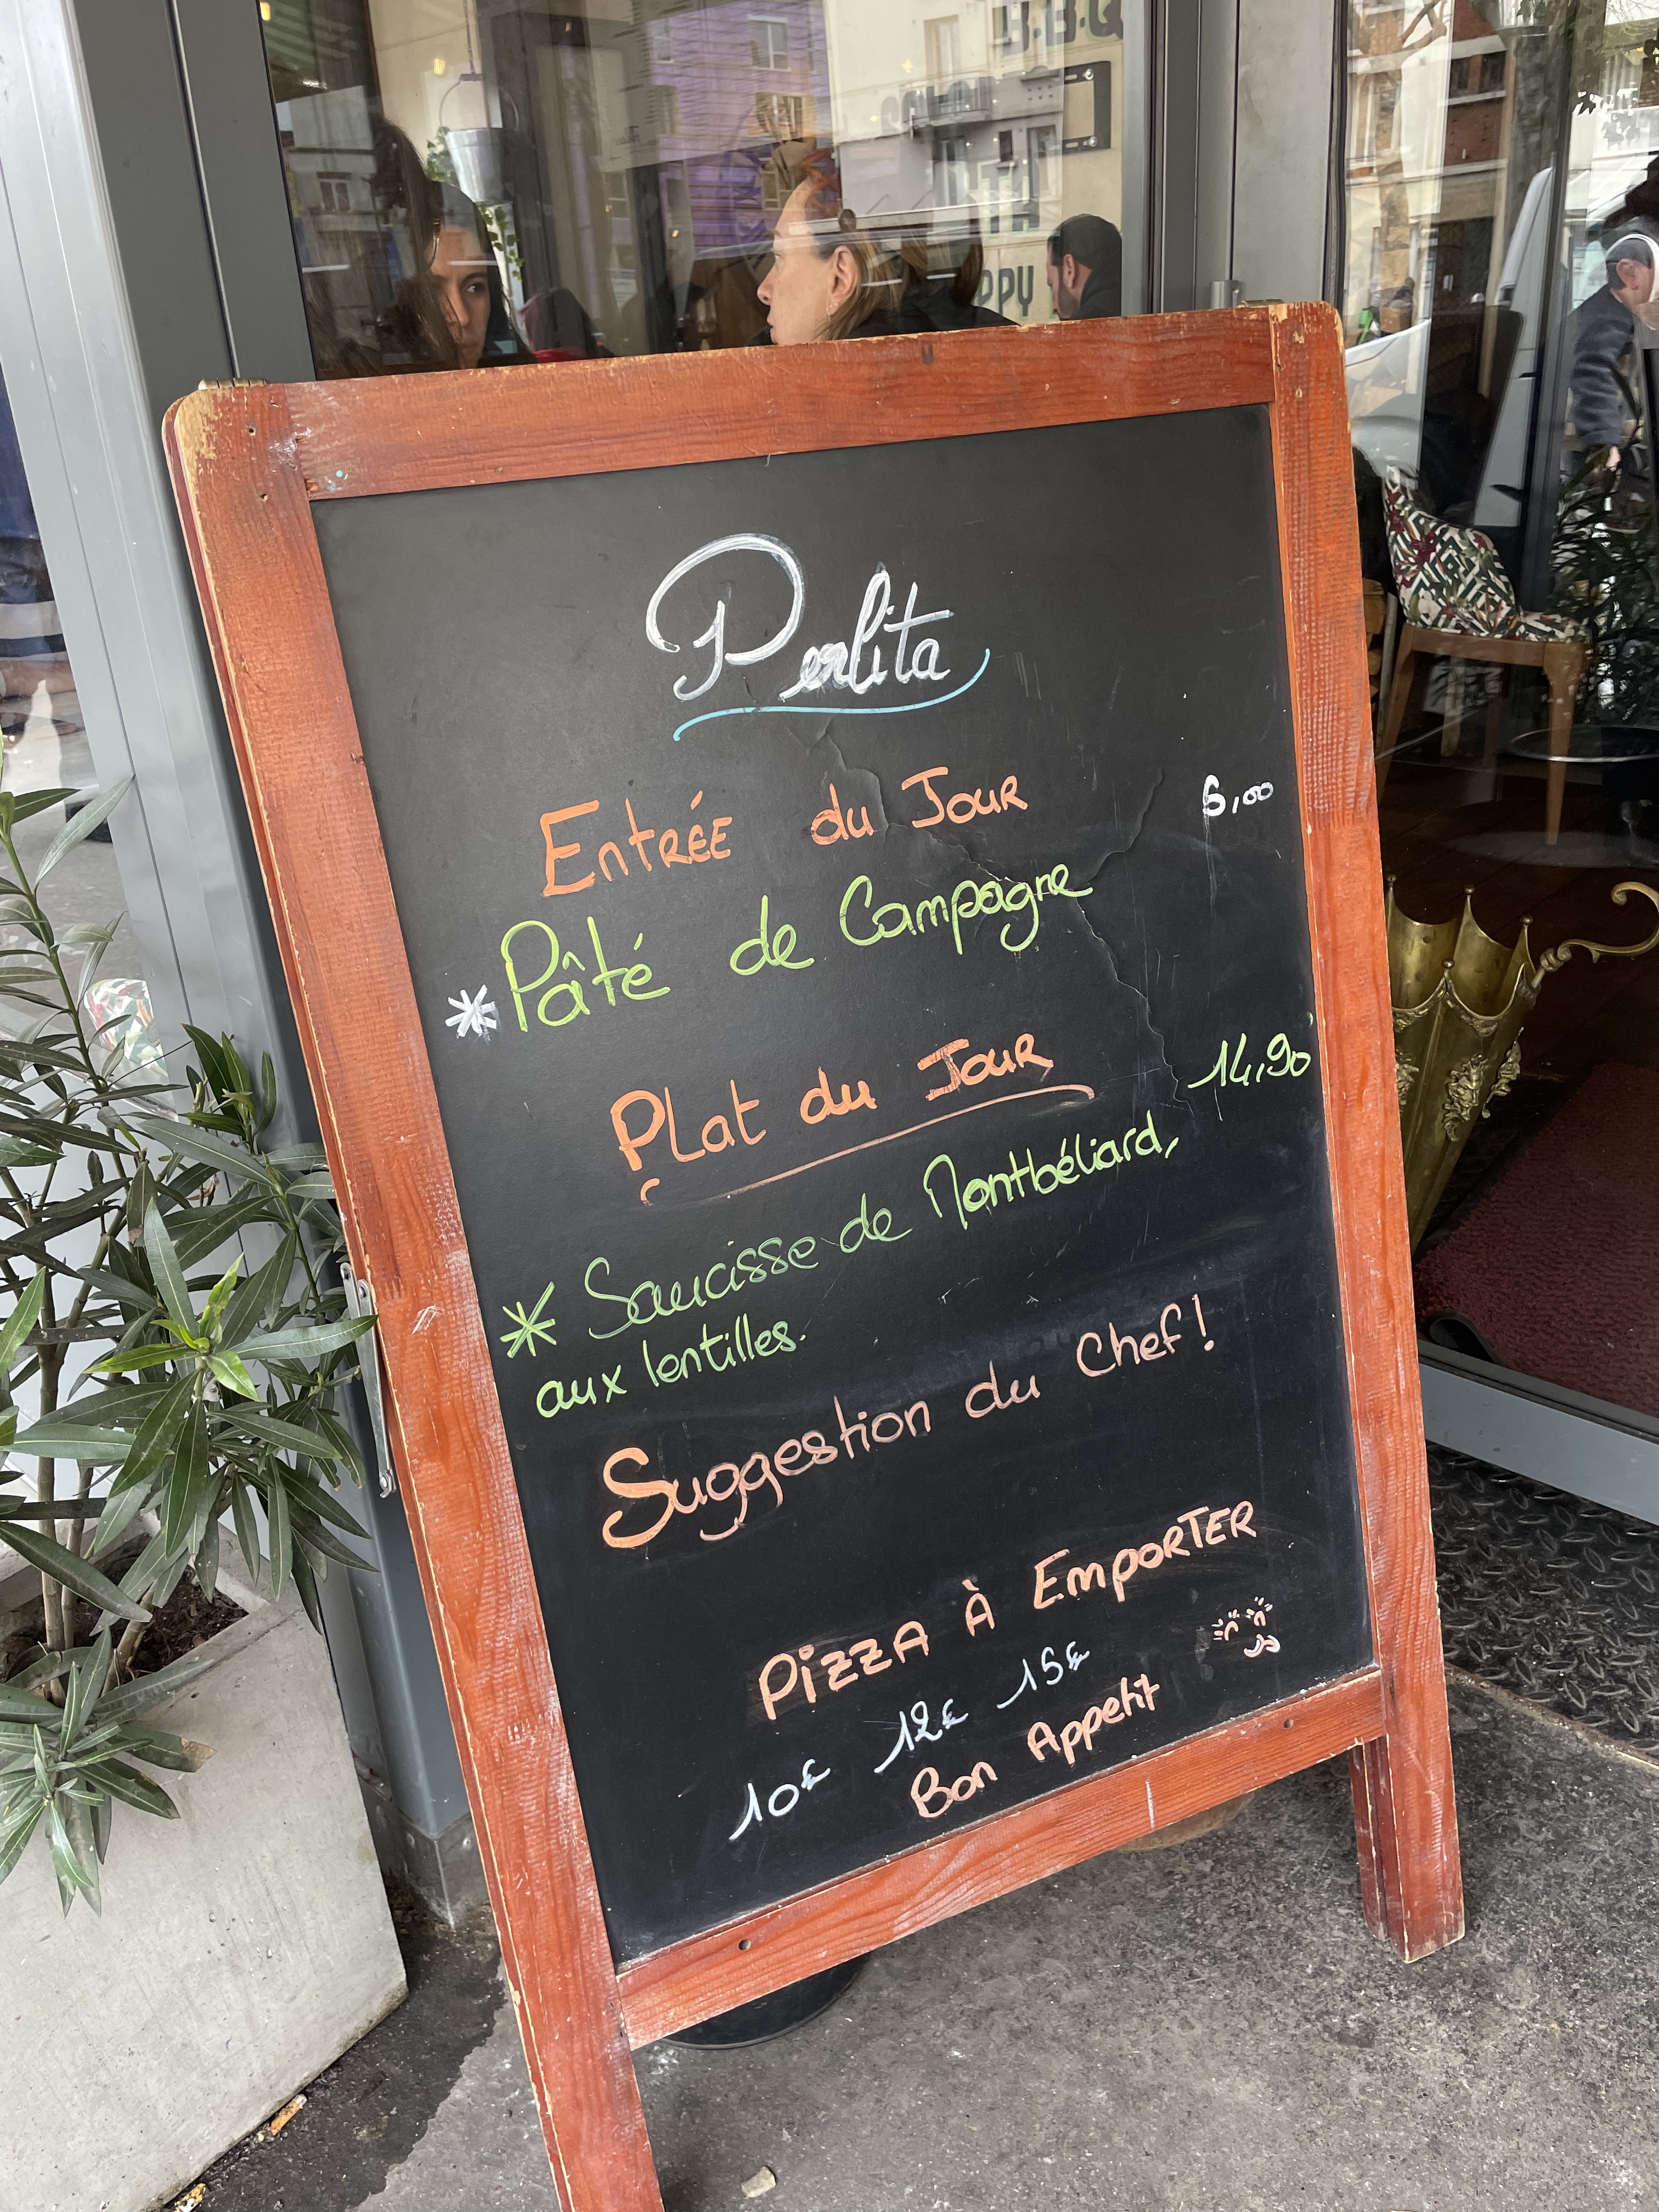 Perlita
Entrée du Jour 6,00
* Pâté de Campagne
Plat du Jour 14,90
* Saucisse de Montbéliard,
aux lentilles.
Suggestion du Chef !
PIZZA À EMPORTER
10€ 12€ 15€
Bon Appetit